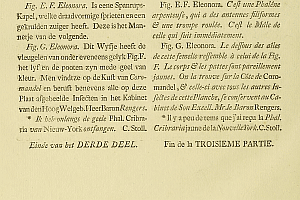 Fig. E. F. Eleonora. Is eene Spanrups-
Kapel, welke draadvormige sprieten en een
gekrulden zuiger heeft. Deze is het Man-
netje van de volgende.
Fig. G. Eleonora. Dit Wyfje heeft de
vleugelen van onder evenëens gelyk Fig. F.
het lyf en de pooten zyn mede geel van
kleur. Men vindze op de Kust van Coro-
mandel en berust benevens alle op deze
Plaat afgebeelde Insecten in het Kabinet
van den Hoog Welgeb. Heer Baron Rengers.
* Ik heb onlangs de gezde Phal. Cribra-
ria van Nieuw-York ontfangen. C. Stoll.
Einde van het DERDE DEEL.
Fig. E. F. Eleonora. C'est une Phalène
arpenteuse, qui a des antennes filiformes
& une trompe roulée. C'est le Mâle de
celle qui suit immédiatement.
Fig. G. Eleonora. Le dessous des ailes
de cette femelle ressemble à celui de la Fig.
F. Le corps & les pattes sont pareillement
jaunes. On la trouve sur la Côte de Coro-
mandel, & celle-ci avec tous les autres In-
sectes de cette Planche, se conservent au Ca-
binet de Son Excell. Mr. le Baron Rengers.
* Il y a peu de tems que j'ai reçu la Phal.
Cribraria jaune de la Nouvelle York. C. Stoll.
Fin de la TROISIEME PARTIE.